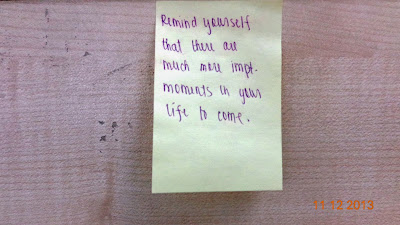 Remind yourself
that there are
much more impt.
moments in your
life to come.
11 12 2013